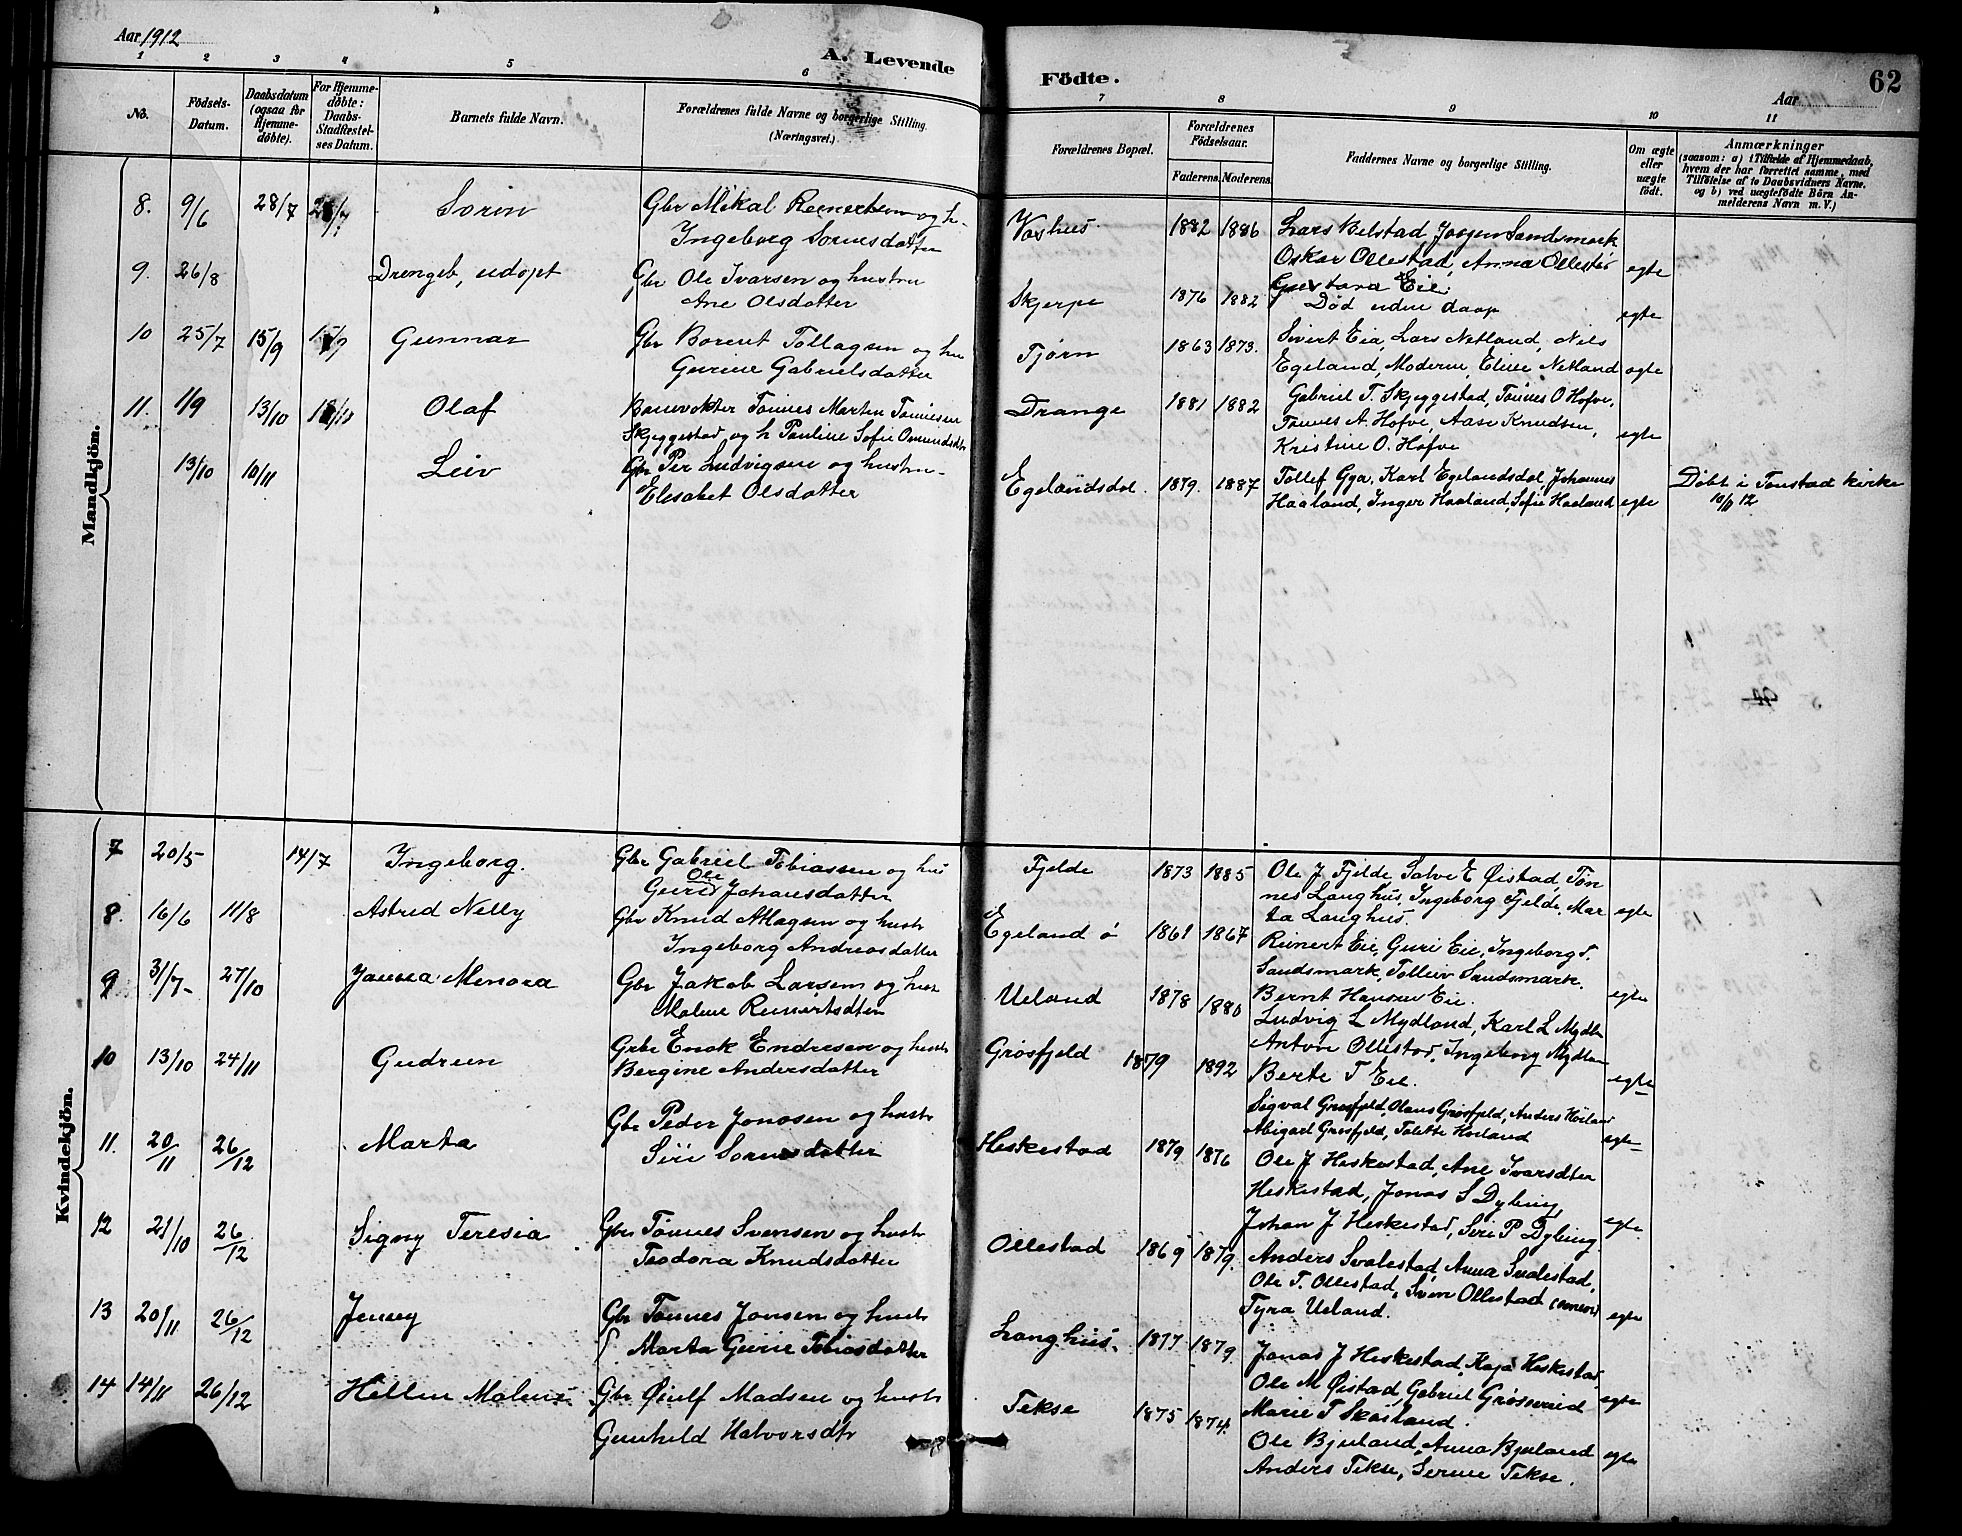 Aar 1912
A. Levende
Födte.
Aar
62
1 2 3 4 5 6 7 8 9 10 11
No.
Födsels-Datum.
Daabsdatum (ogsaa for Hjemmedöbte).
For Hjemmedöbte: Daabs-Stadfæstelses Datum.
Barnets fulde Navn.
Forældrenes fulde Navne og borgerlige Stilling. (Næringsvei.)
Forældrenes Bopæl.
Forældrenes Födselsaar.
Faderens. Moderens.
Faddernes Navne og borgerlige Stilling.
Om ægte eller uægte födt.
Anmærkninger
(saasom: a) i Tilfælde af Hjemmedaab, hvem der har forrettet samme, med Tilföielse af to Daabsvidners Navne, og b) ved uægtefödte Börn Anmelderens Navn m. V.)
Mandkjön.
8. 9/6 28/7 Sorin
Gbr Mikal Reinertsen og h.
Ingeborg Sornesdatter
1882 1886
Lars Bilstad, Jorgen Sandsmark
Oskar Ollestad, Anna Ollestad
Gustava Eie.
egte
9. 26/8 Drengeb. udøpt
Gbr Ole Ivarsen og hustru
Ane Olsdatter
Skjerpe 1876 1882
Død uden daap
egte
10 25/7 15/9 Gunnar
Gbr Borent Tollagsen og hu
Gurine Gabrielsdatter
Tjörn 1863 1873.
Sivert Eia, Lars Netland, Nils
Egeland, Moderen, Eline Netland
egte
11. 1/9 13/10 Olaf
Banevokter Tönnes Martin Tönnesen
Skjeggestad og h Pauline Sofie Omundsdtr
Drange 1881 1882
Gabriel T. Skjeggestad, Tönnes O Hofve,
Tönnes A. Hofve, Aase Knudsen,
Kristine O. Hofve
egte
13/10 10/11 Leiv
Gbr Per Ludvigsen og hustru
Elisabet Olsdatter
Egelandsdal. 1879. 1887
Tollef Gya, Karl Egelandsdal, Johannes
Haaland, Inger Haaland, Sofie Haaland
egte
Döbt i Tonstad kirke
10/11 12
Kvindekjön.
7 20/5 14/7 Ingeborg.
Gbr Gabriel Tobiassen og hus
Guri Ole Johansdatter
Fjelde 1873 1885
Ole J Fjelde, Salve E Øistad, Tön
nes Langhus, Ingeborg Fjelde, Mar
ta Langhus.
egte
8. 16/6 11/8 Astrid Nelly
Gbr Knud Atlagsen og hustr
Ingeborg Andreasdatter
Egeland ö 1861 1867
Reinert Eie, Guri Eie, Ingeborg S.
Sandsmark, Tolleiv Sandsmark.
Bernt Hansen Eie.
egte
9 31/7 27/10 Menora
Gbr Jakob Larsen og hust
Malene Reinertsdtr
Ueland 1878 1880
Ludvig L Mydland, Karl L Mydl
Anton Ollestad, Ingeborg Mydlan
Berte T Eie.
egte
10 13/10 24/11 Gudrun
Grbr Enok Endresen og hustr
Bergine Andersdatter
Grösfjeld 1879 1892
Sigval Grosfjeld, Olaus Grösfjeld, Anders Höiland
Abigael Grosfjeld, Tolette Höiland
egte
11. 20/11 26/12 Marta
Gbr Peder Jonasen og hustr
Siri Sornesdatter
Heskestad 1879 1876
Ole J Heskestad, Ane Ivarsdtr
Heskestad, Jonas S Dyling,
Johan J Heskestad, Siri P Dyling.
egte
12 21/10 26/12 Signy Teresia
Gbr Tönnes Svensen og hustr
Teodora Knudsdatter
Ollestad 1869 1879.
Anders Svalestad, Anna Svalestad,
Ole T. Ollestad, Sven Ollestad
Tyra Ueland.
egte
13 20/11 26/12 Jenny
Gbr Tönnes Jonsen og hustr
Marta Gurie Tobiasdatter
Langhus. 1877 1879
Jonas J Heskestad, Kaja Heskestad,
Ole M Øistad, Gabriel Grösvei
Marie T Skailand.
egte
14 14/11 26/12 Hellen Malene
Gbr Øiulf Madsen og hustr
Gunhild Halvorsdtr
Tekse 1875 1874.
Ole Bjuland, Anna Bjuland
Anders Tekse, Serine Tekse.
egte